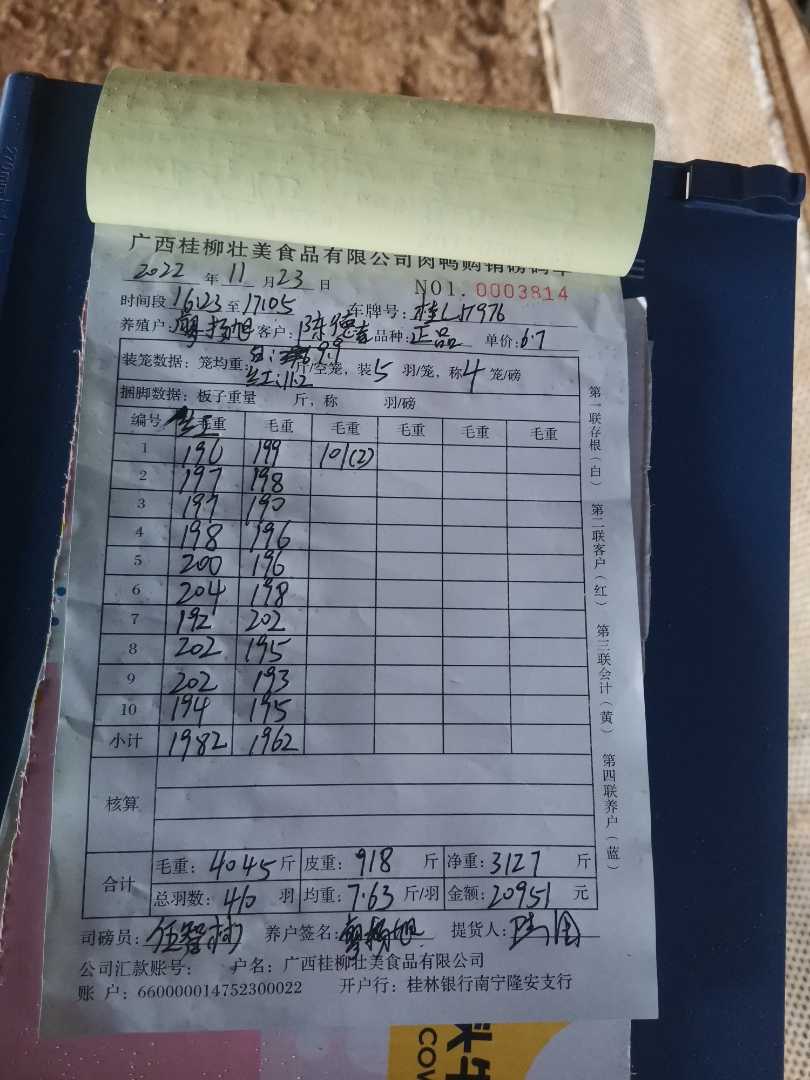 广西桂柳壮美食品有限公司肉鸭购销磅码单
2022 年 11 月 23 日 NO1. 0003814
时间段 16:23 至 17:05 车牌号: 桂L17976
养殖户: 廖扬旭 客户: 陈德喜 品种: 正品 单价: 6.7
装笼数据: 笼均重: 白: 9.9 斤/空笼, 装 5 羽/笼, 称 4 笼/磅
红: 11.2
捆脚数据: 板子重量 斤, 称 羽/磅
编号 红 毛重 毛重 毛重 毛重 毛重 毛重
1 196 199 101(2)
2 197 198
3 197 190
4 198 196
5 200 196
6 204 198
7 192 202
8 202 195
9 202 193
10 194 195
小计 1982 1962
核算
合计 毛重: 4045 斤 皮重: 918 斤 净重: 3127 斤
总羽数: 410 羽 均重: 7.63 斤/羽 金额: 20951 元
司磅员: 任智 养户签名: 廖扬旭 提货人:
公司汇款账号: 户名: 广西桂柳壮美食品有限公司
账 户: 660000014752300022 开户行: 桂林银行南宁隆安支行
第一联存根(白) 第二联客户(红) 第三联会计(黄) 第四联养户(蓝)
270mm
COV